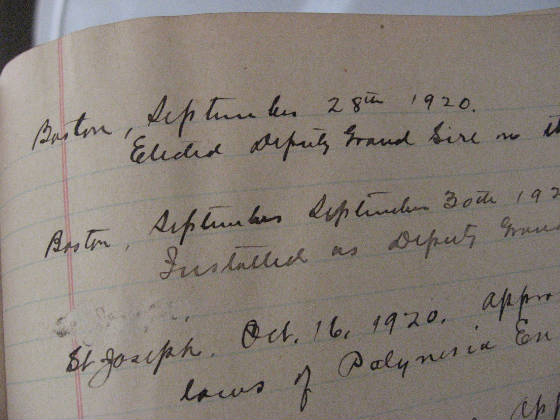 Boston, September 28th 1920.
Elected Deputy Grand Sire on th
Boston, September September 30th 192
Installed as Deputy Grand
St Joseph. Oct. 16, 1920. Appro
laws of Polynesia En
App